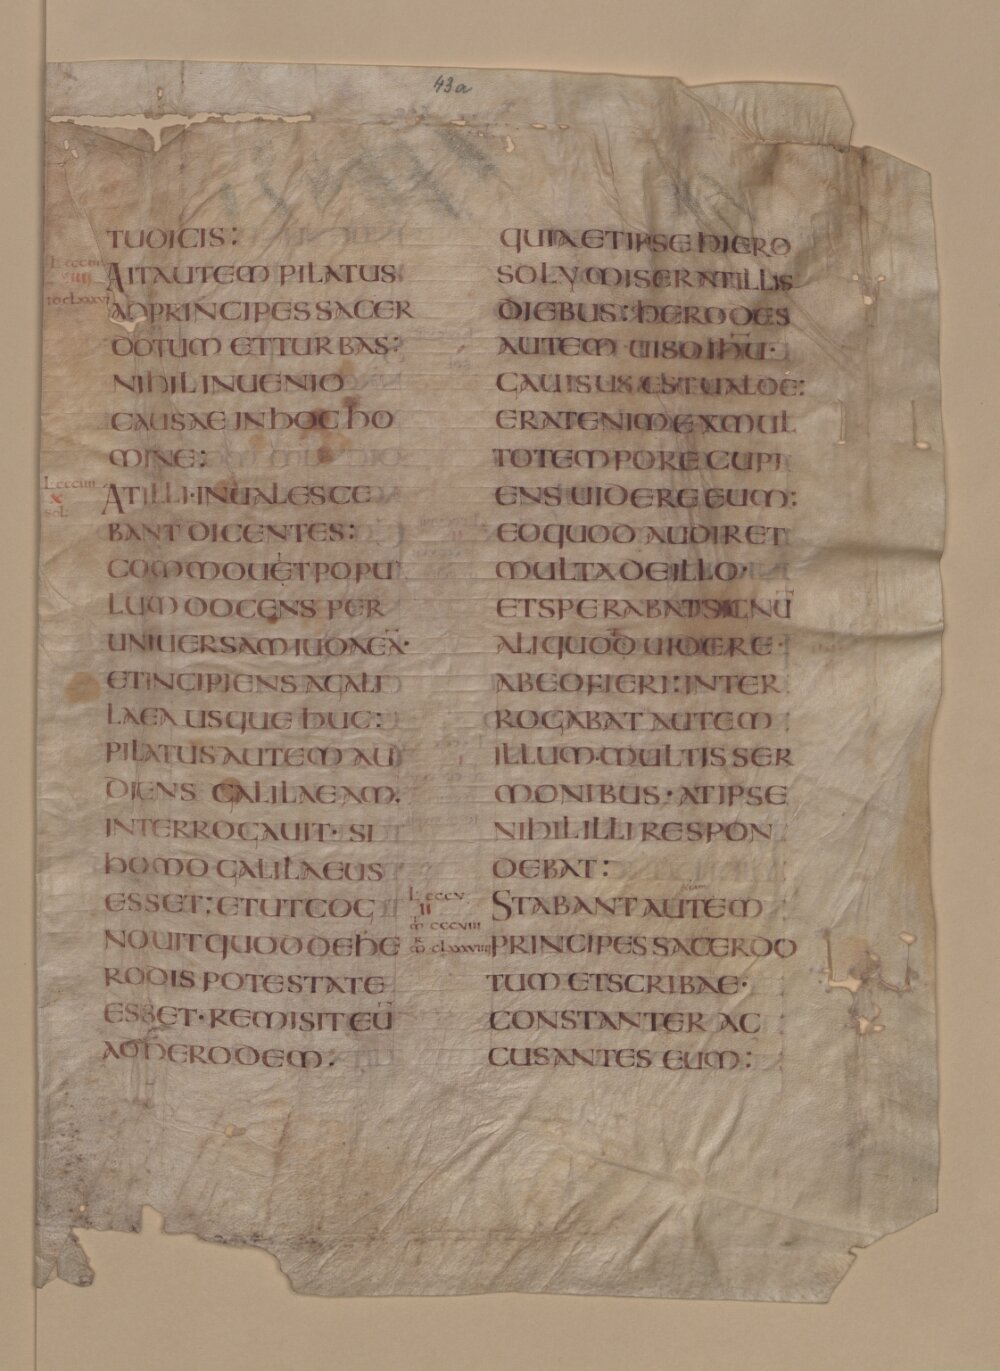 43a
TU DICIS:
AIT AUTEM PILATUS
AD PRINCIPES SACER
DOTUM ET TURBAS:
NIHIL INUENIO
CAUSAE IN HOC HO
MINE:
AT ILLI·INUALESCE
BANT DICENTES:
COMMOUET POPU
LUM DOCENS PER
UNIUERSAM IUDAEĀ·
ET INCIPIENS A GALI
LAEA USQUE HUC:
PILATUS AUTEM AU
DIENS GALILAEAM.
INTERROGAUIT· SI
HOMO GALILAEUS
ESSET: ET UT COG
NOUIT QUOD DE HE
RODIS POTESTATE
ESSET· REMISIT EŪ
AD HERODEM:
QUIA ET IPSE HIERO
SOLYMIS ERAT ILLIS
DIEBUS: HERODES
AUTEM UISO IHŪ·
GAUISUS EST UALDE:
ERAT ENIM EX MUL
TO TEMPORE CUPI
ENS UIDERE EUM:
EO QUOD AUDIRET
MULTA DE ILLO·
ET SPERABAT SIGNŪ
ALIQUOD UIDERE·
AB EO FIERI: INTER
ROGABAT AUTEM
ILLUM·MULTIS SER
MONIBUS· AT IPSE
NIHIL ILLI RESPON
DEBAT:
L cccv
II
M cccviii
STABANT AUTEM
PRINCIPES SACERDO
TUM ET SCRIBAE·
CONSTANTER AC
CUSANTES EUM: